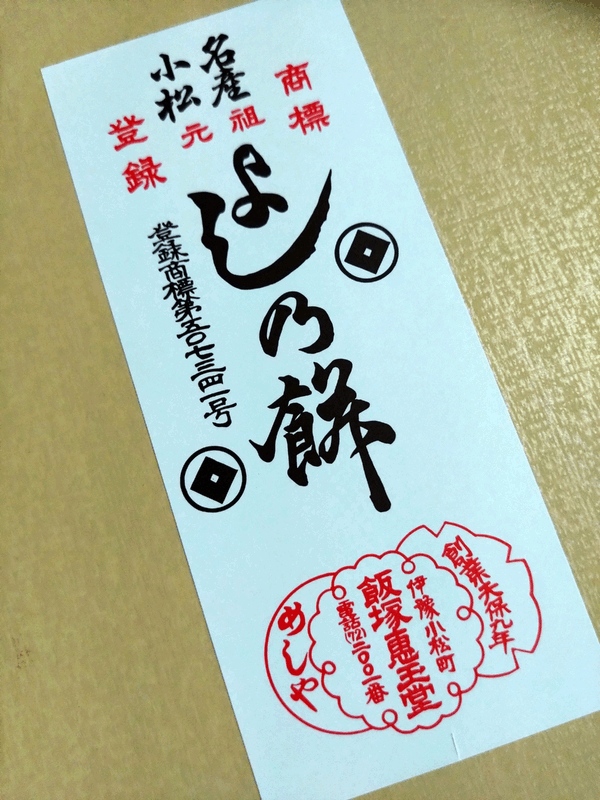 商標
登録
名産
小松
元祖
よしの乃餅
登録商標第五〇七三四一号
創業天保九年
伊豫小松町
飯塚恵王堂
電話(72)二〇〇一番
めしや